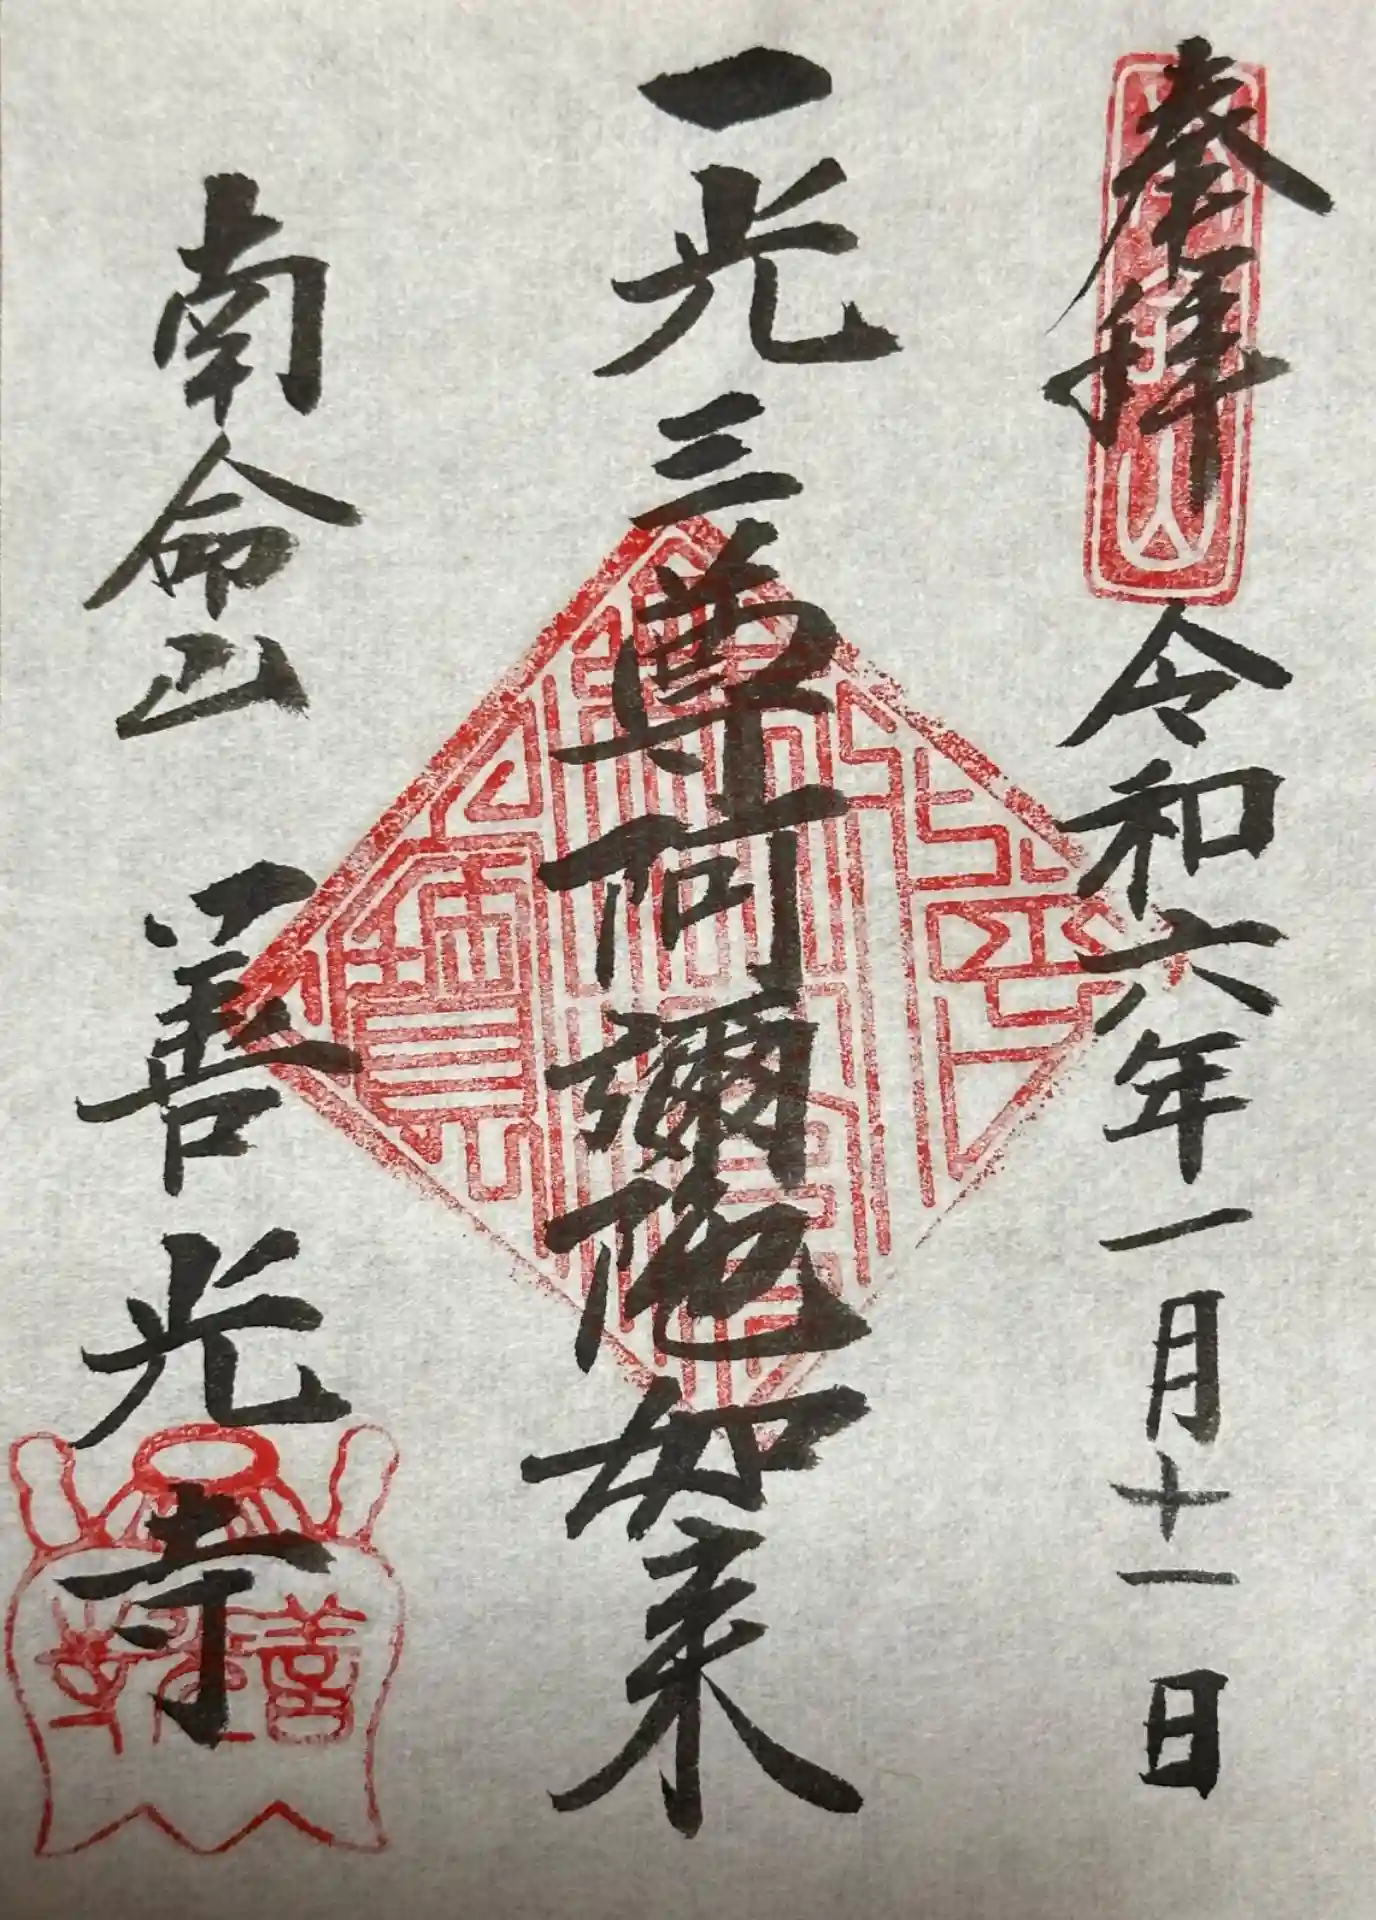 奉拝 令和六年一月十一日
一光三尊阿彌陀如来
南命山 善光寺
善光寺